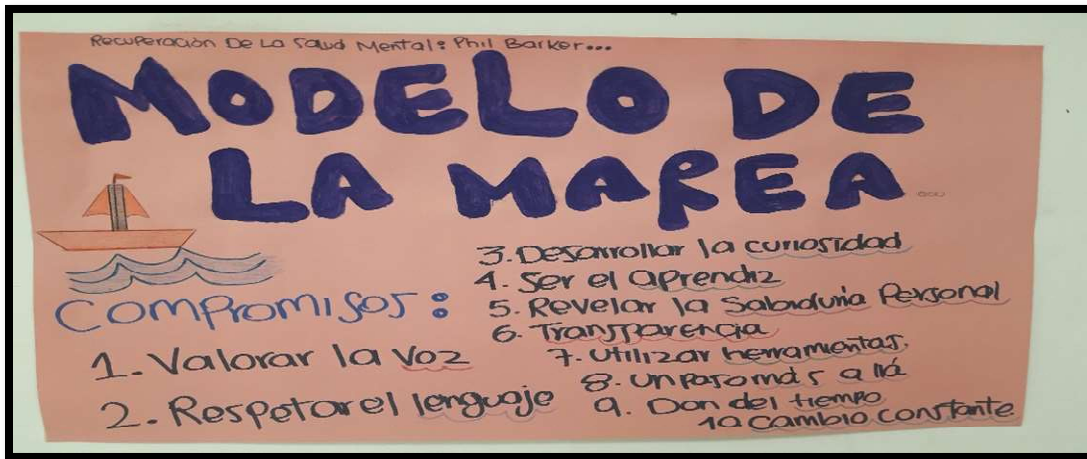 Recuperación De La Salud Mental: Phil Barker...
MODELO DE
LA MAREA...
Compromisos:
1. Valorar la Voz
2. Respetar el lenguaje
3. Desarrollar la curiosidad
4. Ser el aprendiz
5. Revelar la Sabiduria Personal
6. Transparencia
7. Utilizar herramientas.
8. Un paso más allá
9. Don del tiempo
10 Cambio constante